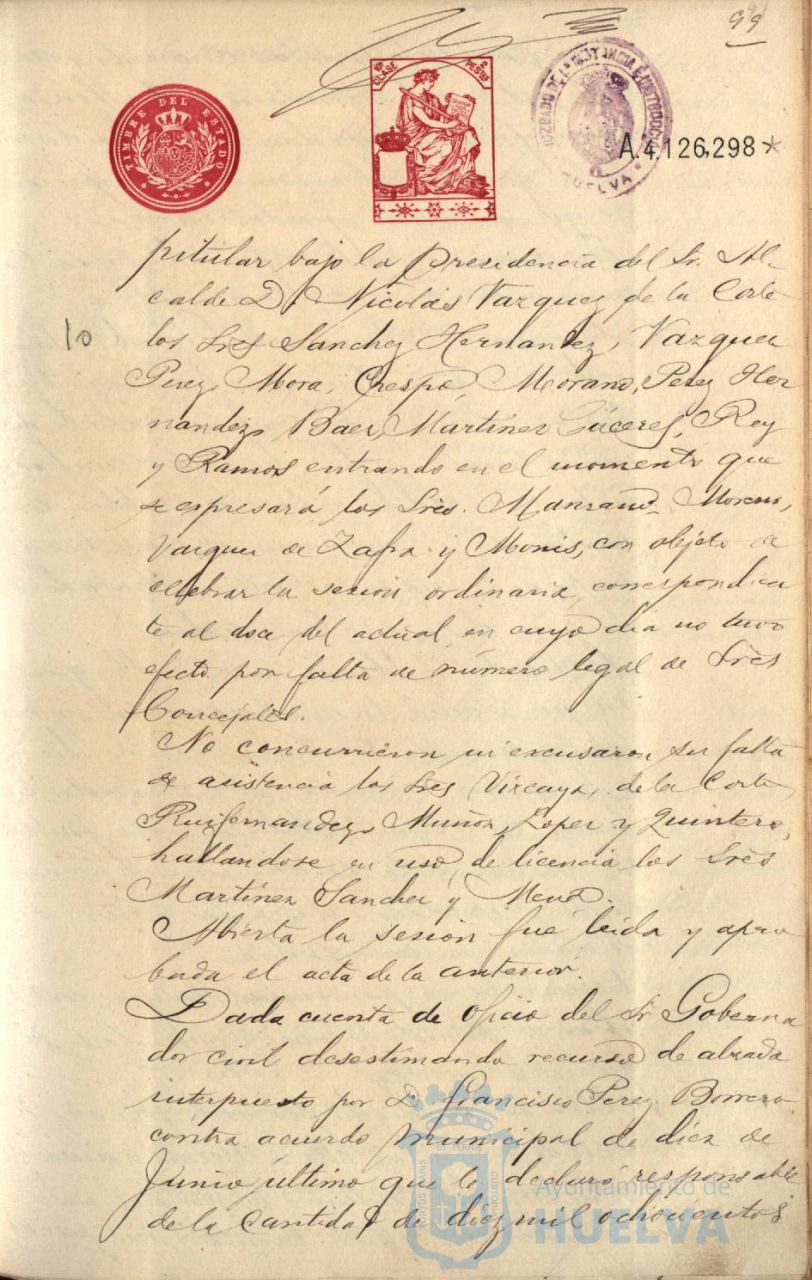 99
TIMBRE DEL ESTADO
10ª CLASE 2 PESTAS
JUZGADO DE 1ª INSTANCIA E INSTRUCCION
HUELVA
A.4,126,298*
pitular bajo la Presidencia del Sr. Al-
calde D. Nicolás Vazquez de la Corte
10
los Sres Sanchez Hernandez, Vazquez
Perez, Mora, Crespo, Morano, Perez Her
nandez, Baez, Martinez Cáceres, Rey
y Ramos entrando en el momento que
se espresará los Sres. Manzano, Moreno,
Vazquez de Zafra y Monis, con objeto de
celebrar la sesion ordinaria correspondien
te al doce del actual, en cuyo dia no tuvo
efecto por falta de número legal de Sres
Concejales.
No concurrieron ni excusaron su falta
de asistencia los Sres Vizcaya, de la Corte,
Ruifernandez, Muñoz, Lopez y Quintero,
hallandose en uso de licencia los Sres
Martinez Sanchez y
Abierta la sesion fué leida y apro
bada el acta de la anterior.
Dada cuenta de oficio del Sr Goberna
dor civil desestimando recurso de alzada
interpuesto por D. Francisco Perez Borrero
contra acuerdo municipal de diez de
Junio ultimo que le declaró responsable
de la cantidad de diez mil ochocientos
Ayuntamiento de
HUELVA